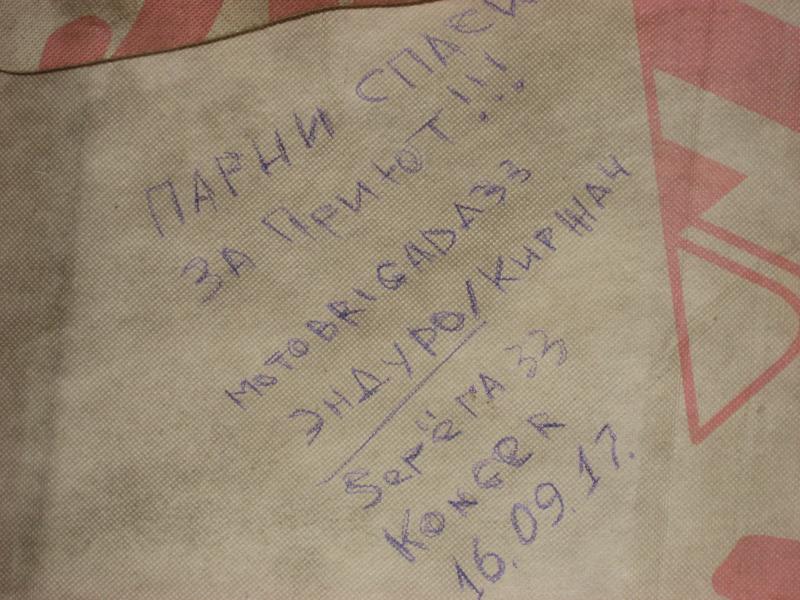 ПАРНИ СПАСИ
ЗА ПРИЮТ!!!
MOTOBRIGADA33
ЭНДУРО/КИРЖАЧ
SeгёГА 33
KONGER
16.09.17.